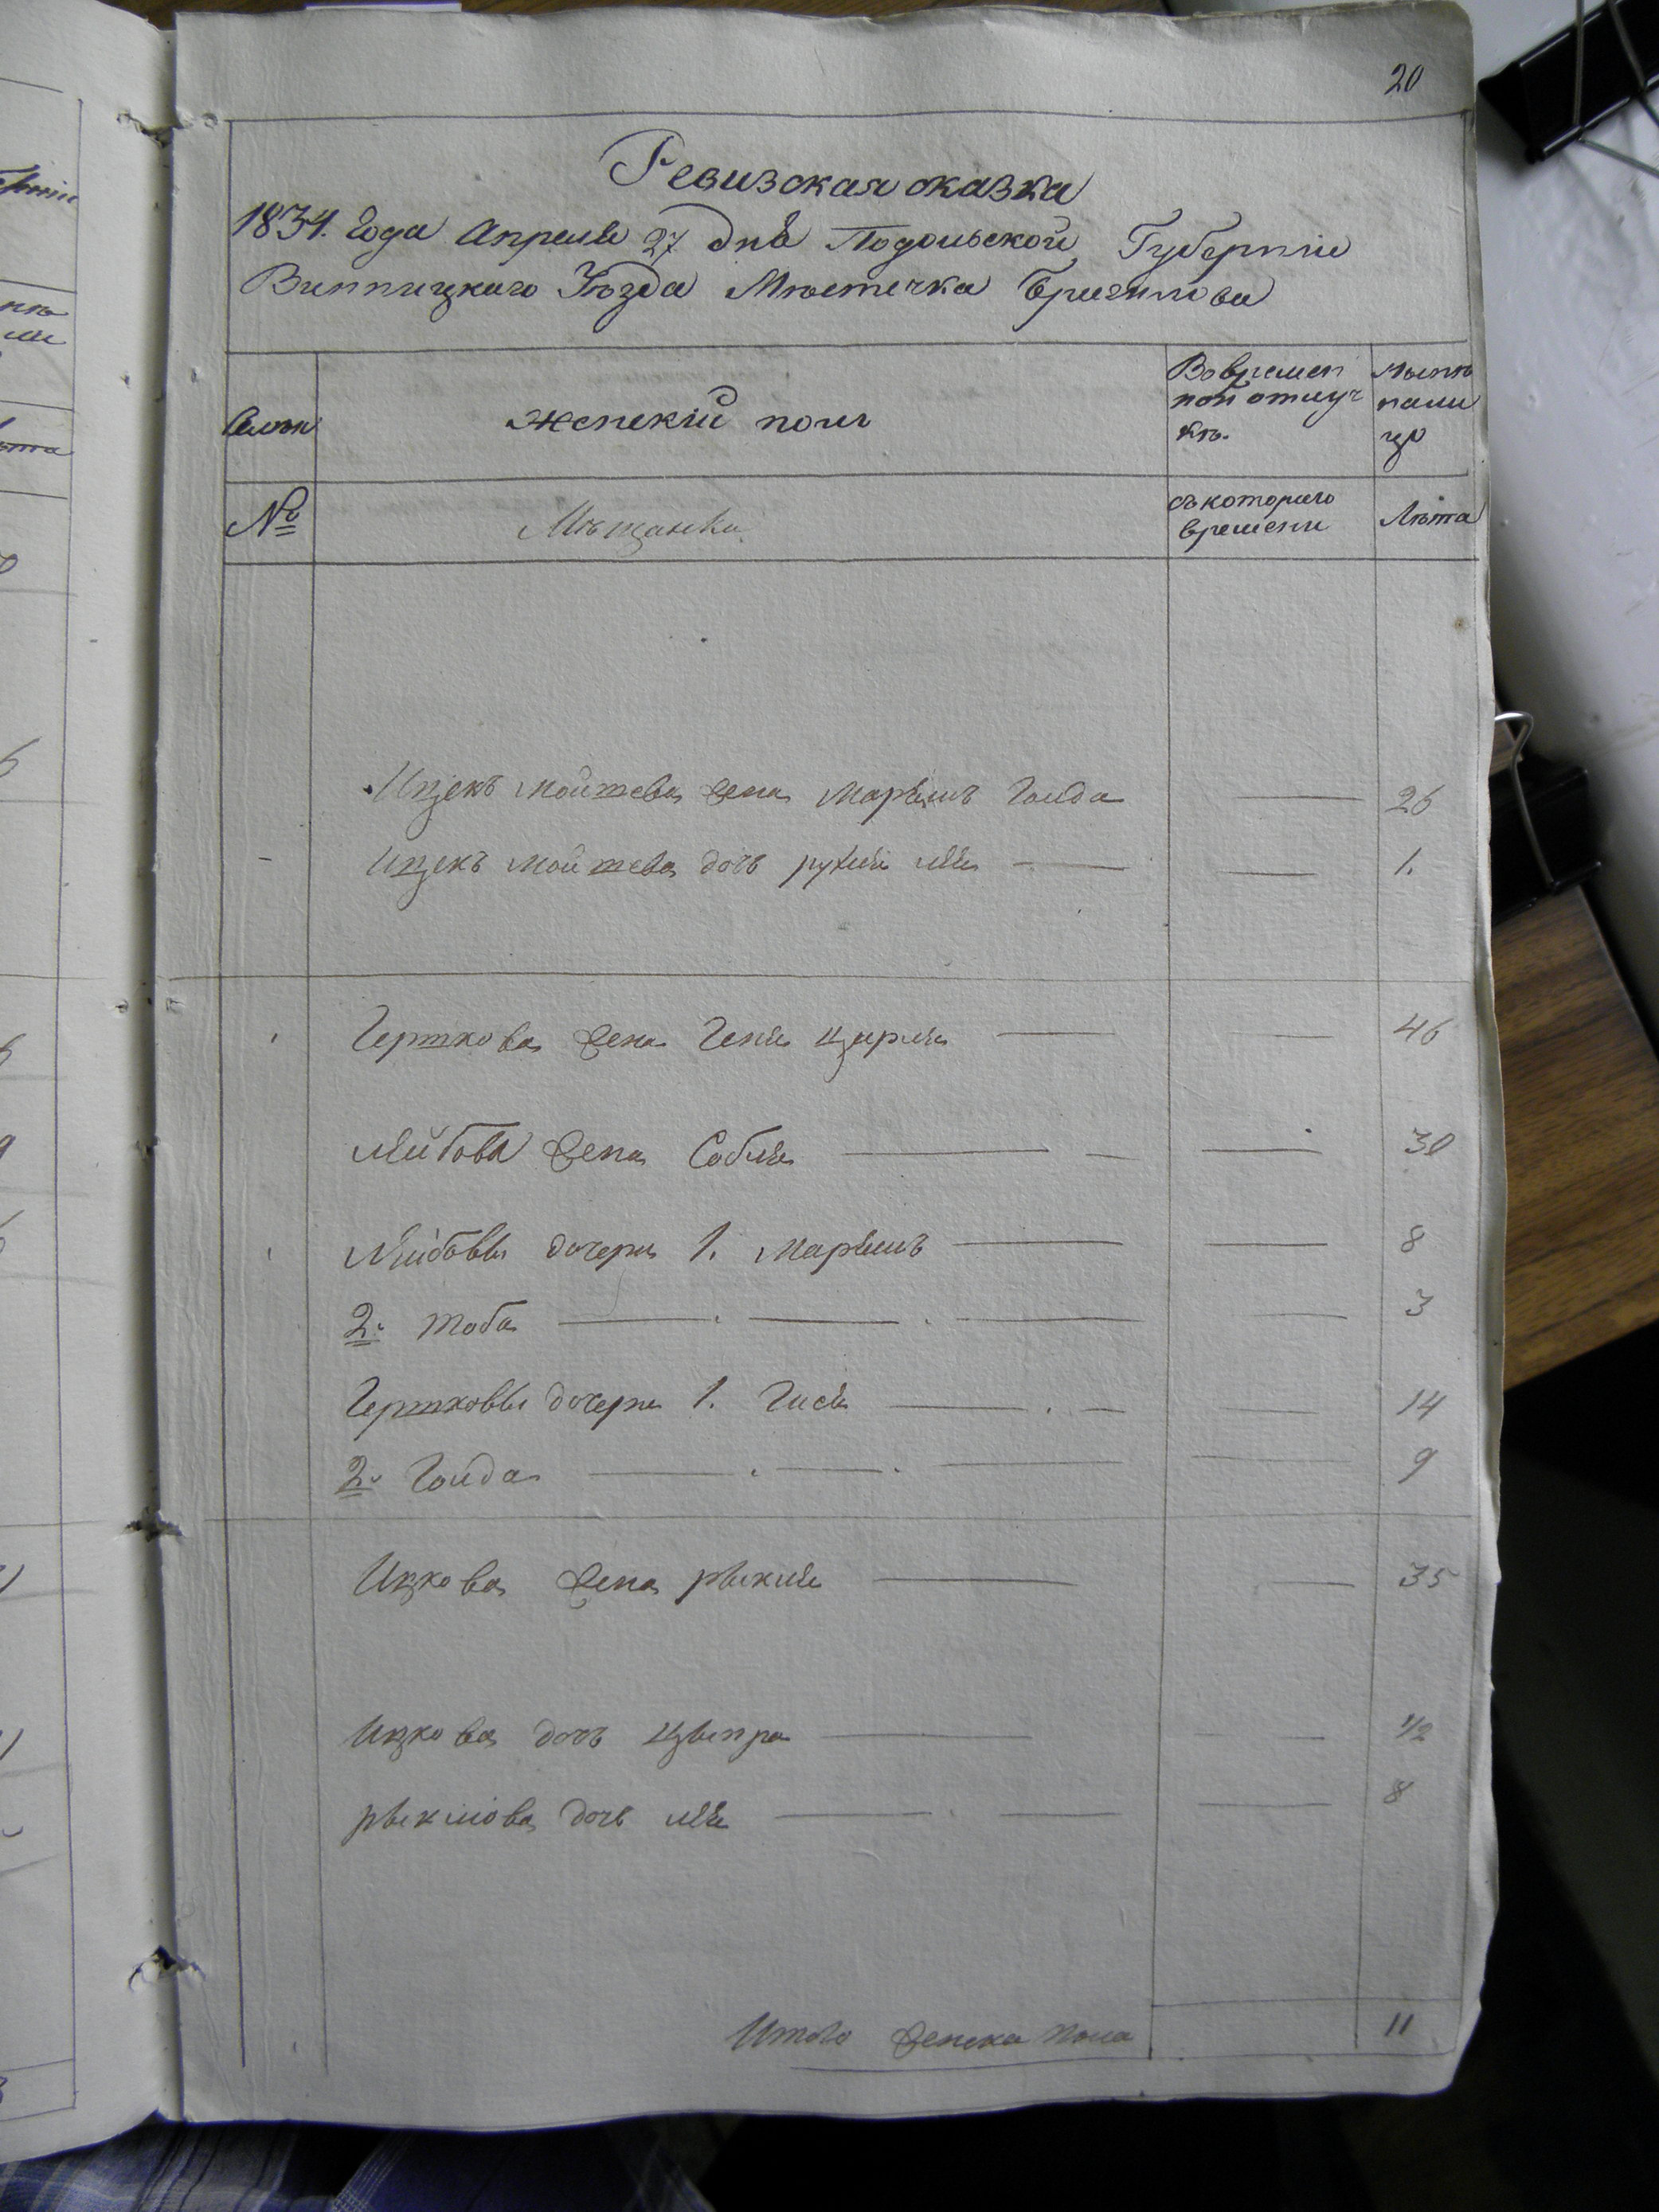 20
Ревизская сказка
1834. Года Апреля 27 дня Подольской Губернии
Винницкаго Уѣзда Мѣстечка Браилова
Семьи
Женскій полъ
Во времен
ной отлуч
кѣ.
Нынѣ
на ли
цо
№
Мѣщанки
съ котораго
времени
Лѣта
Ицекъ Мойшева жена Марьямъ Голда 26
Ицекъ Мойшева дочь рухля лея 1.
Гершкова жена Геня цирля 46
Лейбова жена Собля 30
Лейбовы дочери 1. Марьямъ 8
2. Тоба 3
Гершковы дочери 1. Гися 14
2. Голда 9
Ицкова жена рыкля 35
Ицкова дочь цыпра 1/2
рыклова дочь лея 8
Итого женска пола 11